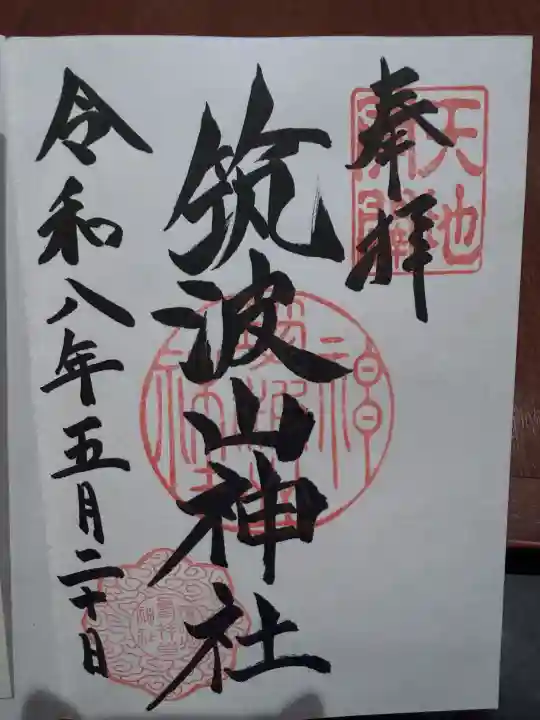 奉拝
天地
開闢
筑波山神社
令和八年五月二十日